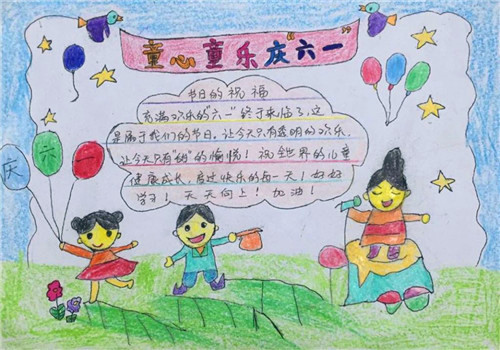 童心童乐庆"六一"
节日的祝福
充满欢乐的"六一"终于来临了,这
是属于我们的节日。让今天只有透明的欢乐,
让今天只有" "的愉悦!祝全世界的儿童
健康成长,度过快乐的每一天!好好
学习!天天向上!加油!
庆六一